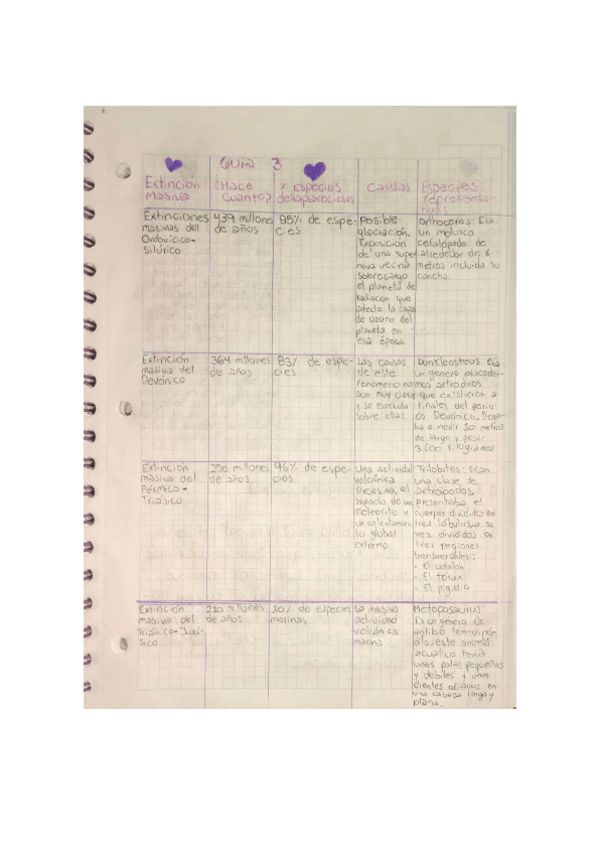 Guia 3
Extinción
Masiva
¿Hace
Cuanto?
% Especies
desaparecidas
Causas
Especies
representa-
tivas
Extinciones
masivas del
Ordovícico-
Silúrico
439 millones
de años
85% de espe-
cies
Posible
glaciación.
Exposición
de una super
nova vecina
sobrecargo
el planeta de
radiación que
afecto la capa
de ozono del
planeta en
esa época.
Ortoceras: Es
un molusco
cefalópodo de
alrededor de 6
metros incluida su
concha.
Extinción
masiva del
Devónico
364 millones
de años
83% de espe-
cies
Las causas
de este
fenomeno no
son muy claras
y se especula
sobre ellas.
Dunkleosteus es
un genero placoder-
mos artrodiros
que existieron a
finales del perio-
do Devónico. Llega-
ba a medir 10 metros
de largo y pesar
3.600 Kilogramos
Extinción
masiva del
Pérmico -
Triásico
250 millones
de años.
96% de espe-
cies
Una actividad
volcánica
excesiva, el
impacto de un
meteorito y
un calentamien-
to global
extremo.
Trilobites: Eran
una clase de
artrópodos,
presentaba el
cuerpo dividido en
tres lóbulos a su
vez divididos en
tres regiones
transversales:
- El cefalón
- El tórax
- El pigidio
Extinción
masiva del
Triásico-Jurá-
sico
210 millones
de años
20% de especies
marinas
La masiva
actividad
volcánica
marina
Metoposaurus
Es un género de
anfibio temnospón-
dilo, este animal
acuatico tenia
unas patas pequeñas
y debiles y unos
dientes afilados en
una cabeza larga y
plana.